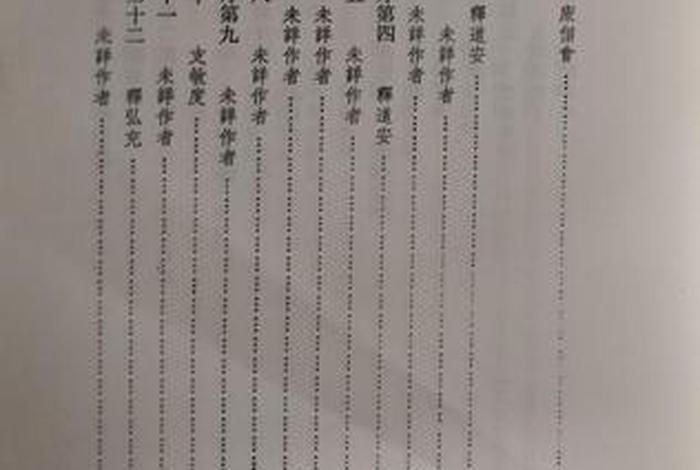 康僧會
釋道安
未詳作者
未詳作者
第四 釋道安
五 未詳作者
未詳作者
未詳作者
八 未詳作者
序第九 未詳作者
十 支敏度
十一 未詳作者
第十二 釋弘充
未詳作者